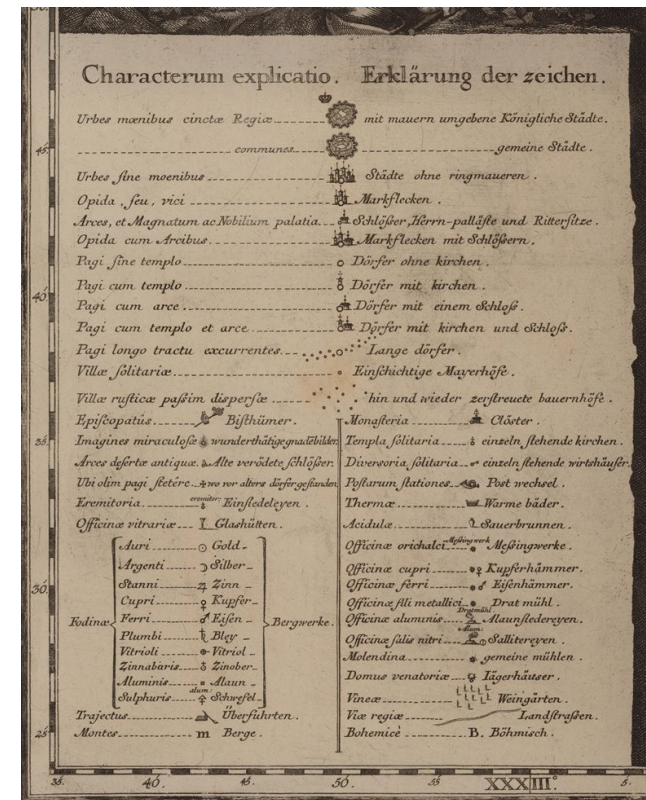 Characterum explicatio. Erklärung der zeichen.
Urbes mœnibus cinctæ Regiæ mit mauern umgebene Königliche Städte.
communes gemeine Städte.
Urbes ſine moenibus Städte ohne ringmaueren.
Opida, ſeu, vici Markflecken.
Arces, et Magnatum ac Nobilium palatia. Schlöſſer, Herrn-pallåſte und Ritterſitze.
Opida cum Arcibus. Markflecken mit Schlöſſern.
Pagi ſine templo Dörfer ohne kirchen.
Pagi cum templo Dörfer mit kirchen.
Pagi cum arce Dörfer mit einem Schloſs.
Pagi cum templo et arce Dörfer mit kirchen und Schloſs.
Pagi longo tractu excurrentes Lange dörfer.
Villæ ſolitariæ Einſchichtige Mayerhöfe.
Villæ ruſticæ paſſim disperſæ hin und wieder zerſtreuete bauernhöfe.
Epiſcopatûs Biſthümer.
Imagines miraculoſæ wunderthätige gnadebilder.
Arces deſertæ antiquæ. Alte verödete ſchlöſſer.
Ubi olim pagi ſtetére. wo vor alters dörfer geſtanden
Eremitoria eremiter: Einſiedeleyen.
Officinæ vitrariæ Glashütten.
Fodinæ Bergwerke.
Auri Gold-
Argenti Silber-
Stanni Zinn-
Cupri Kupfer-
Ferri Eiſen-
Plumbi Bley-
Vitrioli Vitriol-
Zinnabaris Zinober-
Aluminis Alaun-
alum:
Sulphuris Schweſel-
Trajectus Überführten.
Montes m Berge.
Monaſteria Clöster.
Templa ſolitaria einzeln ſtehende kirchen.
Diverſoria ſolitaria einzeln ſtehende wirtshäuſer.
Poſtarum ſtationes Post wechsel.
Thermæ Warme bäder.
Acidulæ Sauerbrunnen.
Meſsingwerk
Officinæ orichalci Meſsingwerke.
Officinæ cupri Kupferhåmmer.
Officinæ ferri Eiſenhämmer.
Officinæ fili metallici Drat mühl.
Dratmühl
Officinæ aluminis Alaunſiedereyen.
Alaun:
Officinæ ſalis nitri Sallitereyen.
Molendina gemeine mühlen.
Domus venatoriæ Iägerhäuser.
Vineæ Weingärten.
Viæ regiæ Landſtraßen.
Bohemicè B. Böhmisch.
45.
40.
35.
30.
25.
35. 40. 45. 50. 55. XXXIII. 5.